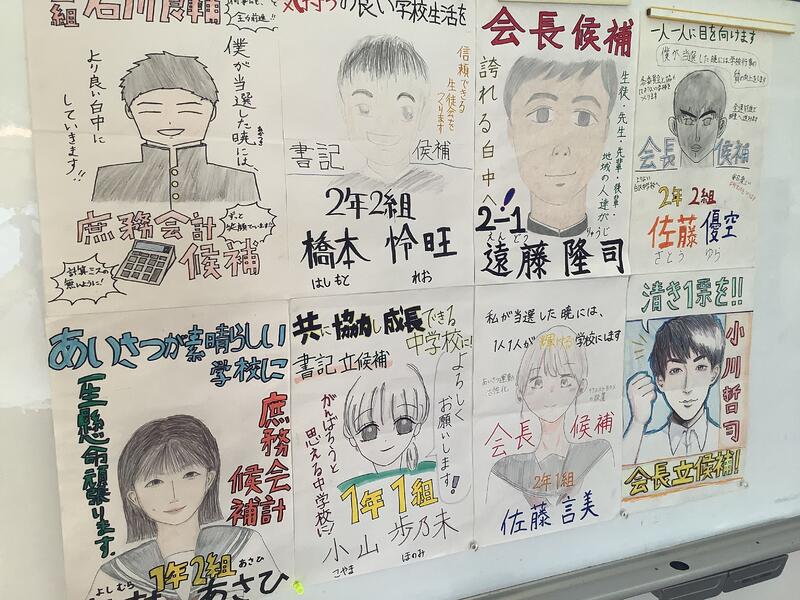 組 石川良輔
僕が当選した暁には、
より良い白中に
していきます!!
庶務会計
候補
ずっと
計算ミスの
無いように!
気持ちの良い学校生活を
信頼できる
生徒会を
つくります
書記 候補
2年2組
橋本 怜旺
はしもと れお
会長候補
誇れる白中へ!
生徒、先生・先輩・後輩
地域の人達が
2-1
えんどう りゅうじ
遠藤隆司
一人一人に目を向けます
僕が当選した暁には学校行事の
質の向上させます
会長 候補
2年2組
佐藤優空
さとう ゆら
あいさつが素晴らしい
学校に
一生懸命頑張ります。
庶務会計
候補
1年2組
よしむら あさひ
村 あさひ
共に協力し成長できる
中学校に!
書記立候補
よろしく
お願いします!
がんばろうと
思える中学校に!
1年1組
小山 歩乃未
こやま ほのみ
私が当選した暁には、
1人1人が輝ける学校にします
あいさつ運動
活性化
会長 候補
2年1組
佐藤言美
清き1票を!!
小川哲司
会長立候補!